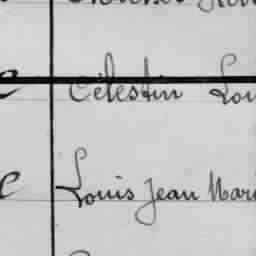 Célestin Lou
Louis Jean Mari